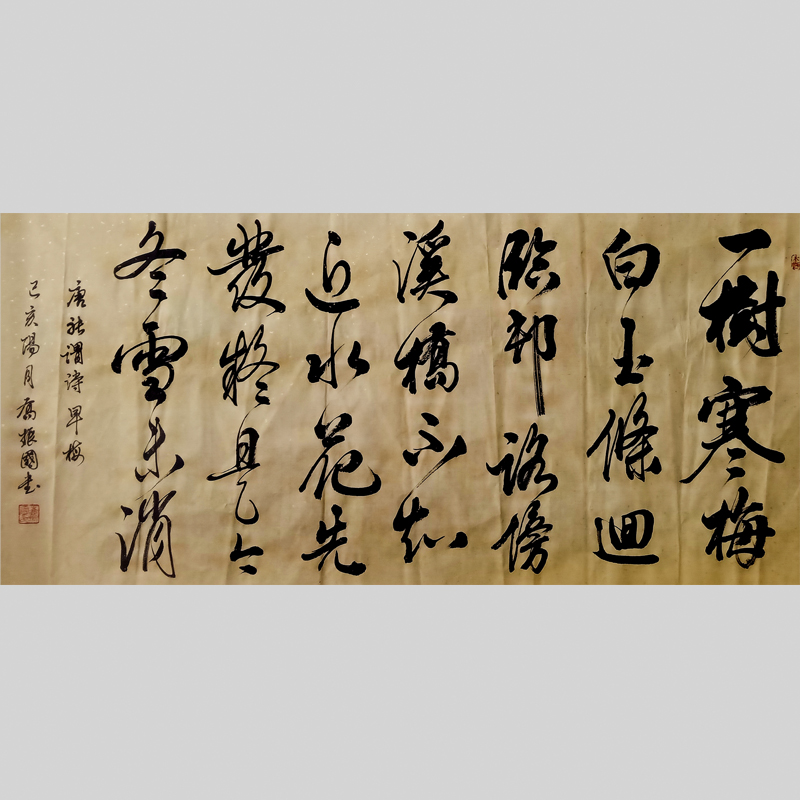 一樹寒梅
白玉條迴
臨邨路傍
溪橋不知
近水花先
發疑是
冬雪未消
唐張謂詩早梅
己亥陽月喬振國書